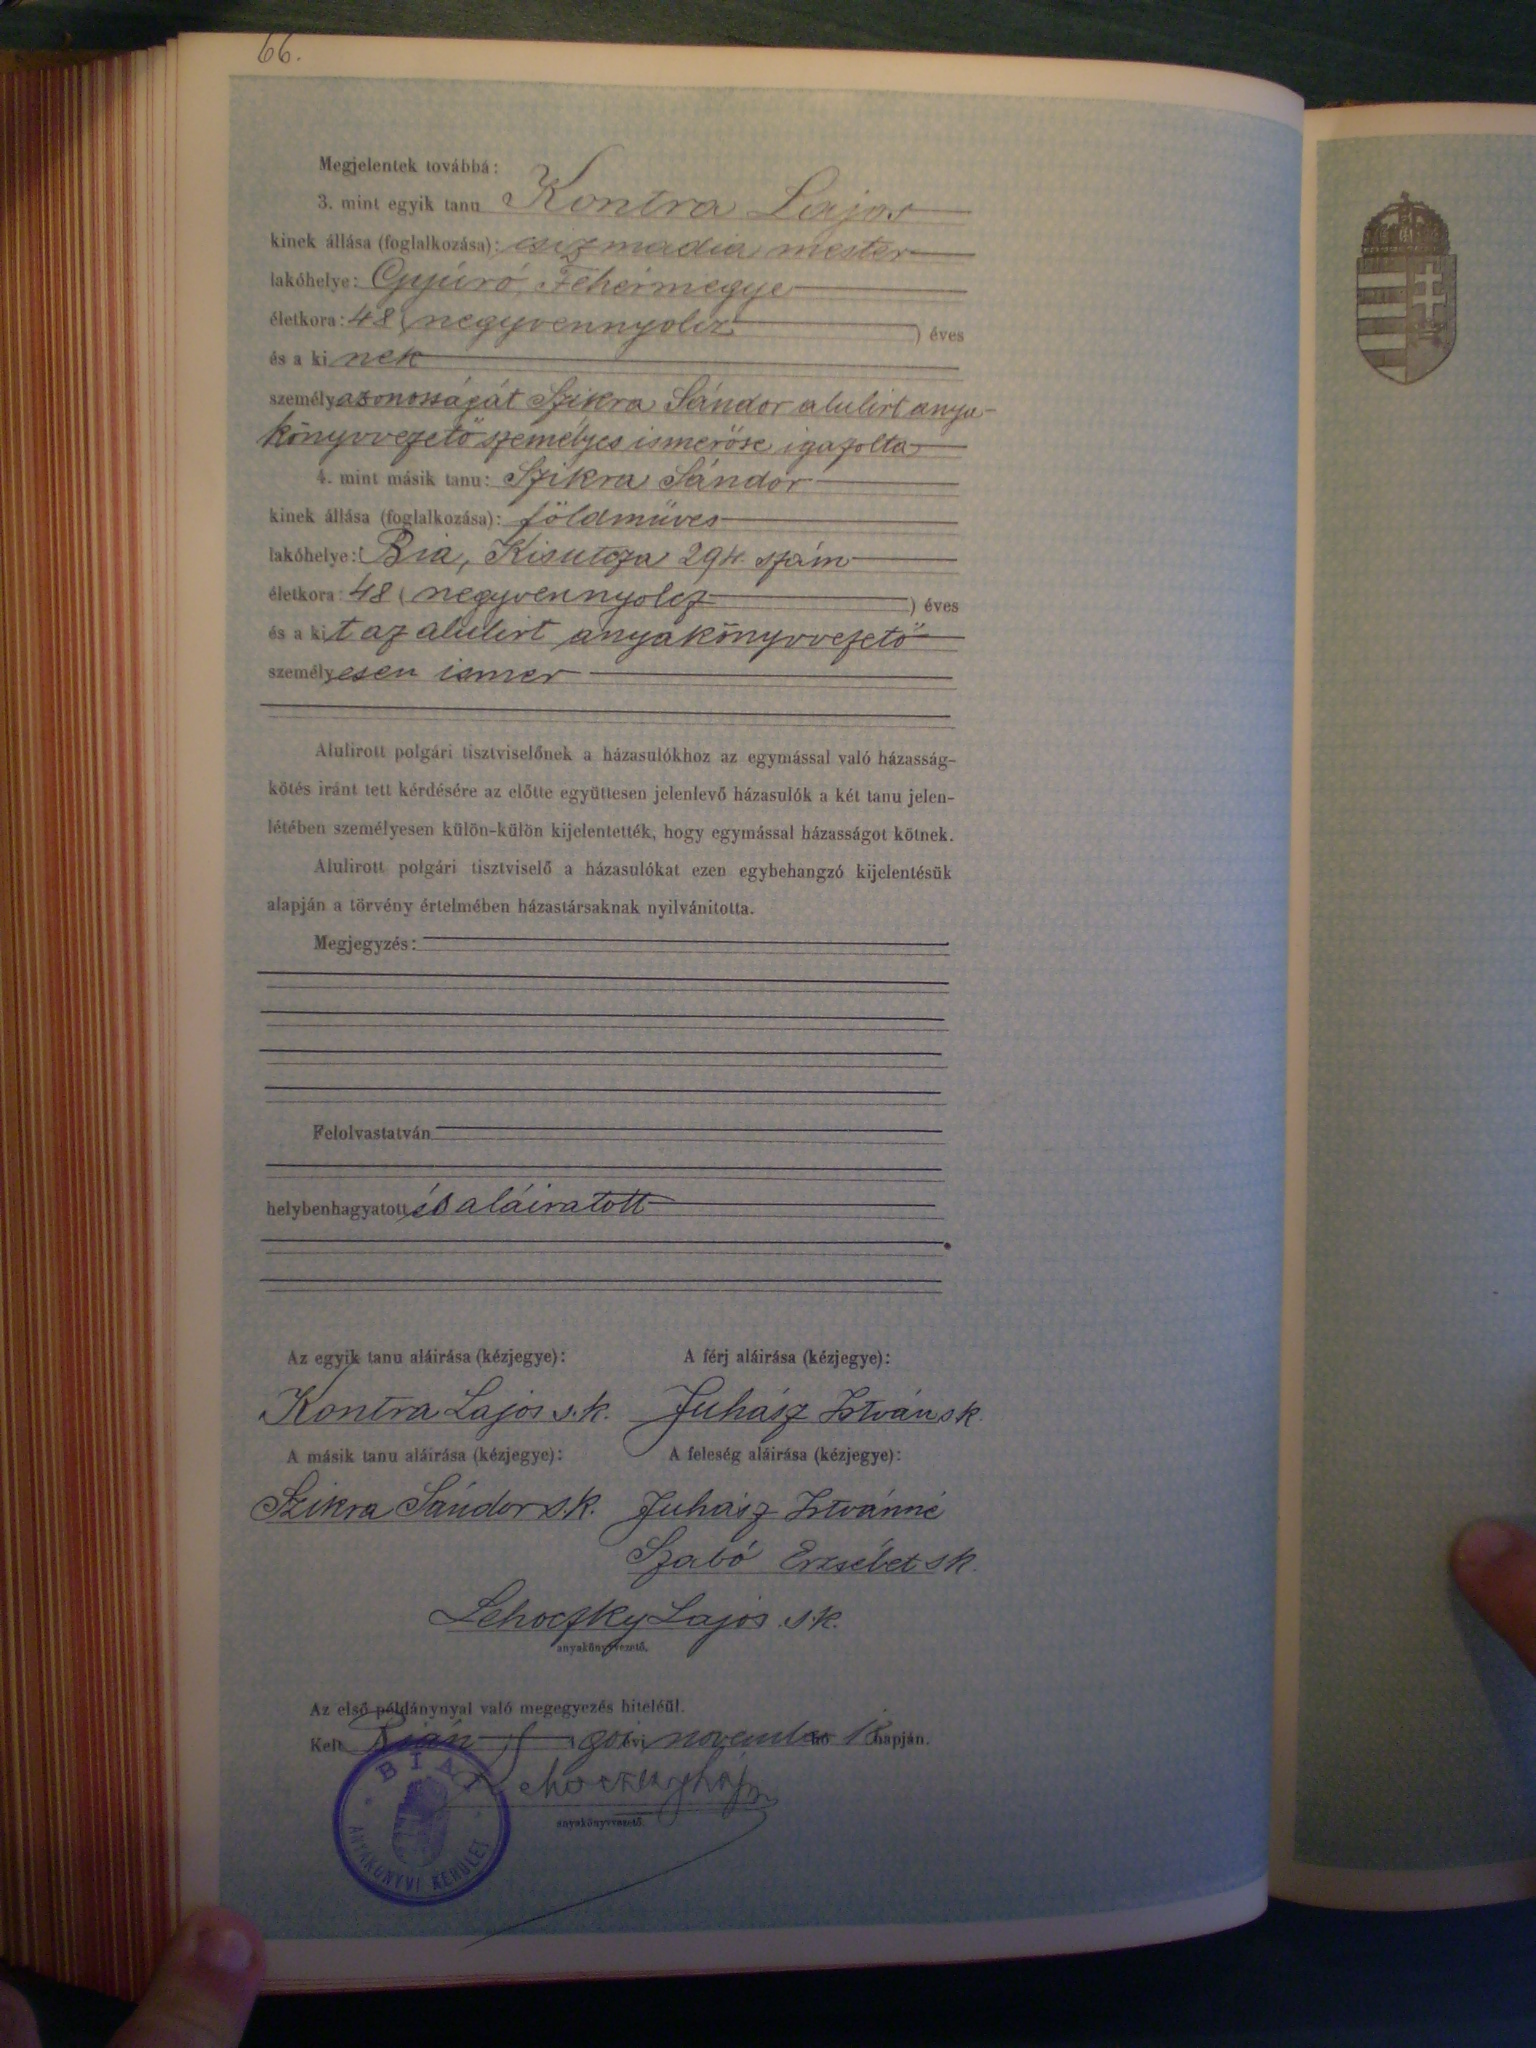 66.
Megjelentek továbbá:
3. mint egyik tanu Kontra Lajos
kinek állása (foglalkozása): csizmadia mester
lakóhelye: Gyúró, Fehérmegye
életkora: 48 (negyvennyolcz ) éves
és a ki nek
személyazonosságát Szikra Sándor alulirt anya-
könyvvezető személyes ismerőse igazolta
4. mint másik tanu: Szikra Sándor
kinek állása (foglalkozása): földműves
lakóhelye: Bia, Kisutcza 294. szám
életkora: 48 (negyvennyolcz ) éves
és a kit az alulirt anyakönyvvezető
személyesen ismer
Alulirott polgári tisztviselőnek a házasulókhoz az egymással való házasság-
kötés iránt tett kérdésére az előtte együttesen jelenlevő házasulók a két tanu jelen-
létében személyesen külön-külön kijelentették, hogy egymással házasságot kötnek.
Alulirott polgári tisztviselő a házasulókat ezen egybehangzó kijelentésük
alapján a törvény értelmében házastársaknak nyilvánitotta.
Megjegyzés:
Felolvastatván
helybenhagyatott és aláiratott
Az egyik tanu aláirása (kézjegye): A férj aláirása (kézjegye):
Kontra Lajos s.k. Juhász István sk.
A másik tanu aláirása (kézjegye): A feleség aláirása (kézjegye):
Szikra Sándor s.k. Juhász Istvánné
Szabó Erzsébet sk.
Lehoczky Lajos s.k.
anyakönyvvezető.
Az első példánynyal való megegyezés hiteléül.
Kelt Bián, évi november hó 18 napján.
Lehoczky Lajos
anyakönyvvezető.
BIAI
ANYAKÖNYVI KERÜLET